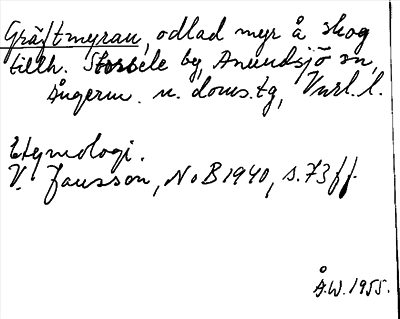 Gräftmyran, odlad myr å skog
tillh. Storsele by, Anundsjö sn,
Ångerm. n. doms.tg, Vnrl. l.
Etymologi.
V. Jansson, NoB 1940, s. 73 ff.
Å.W. 1955.